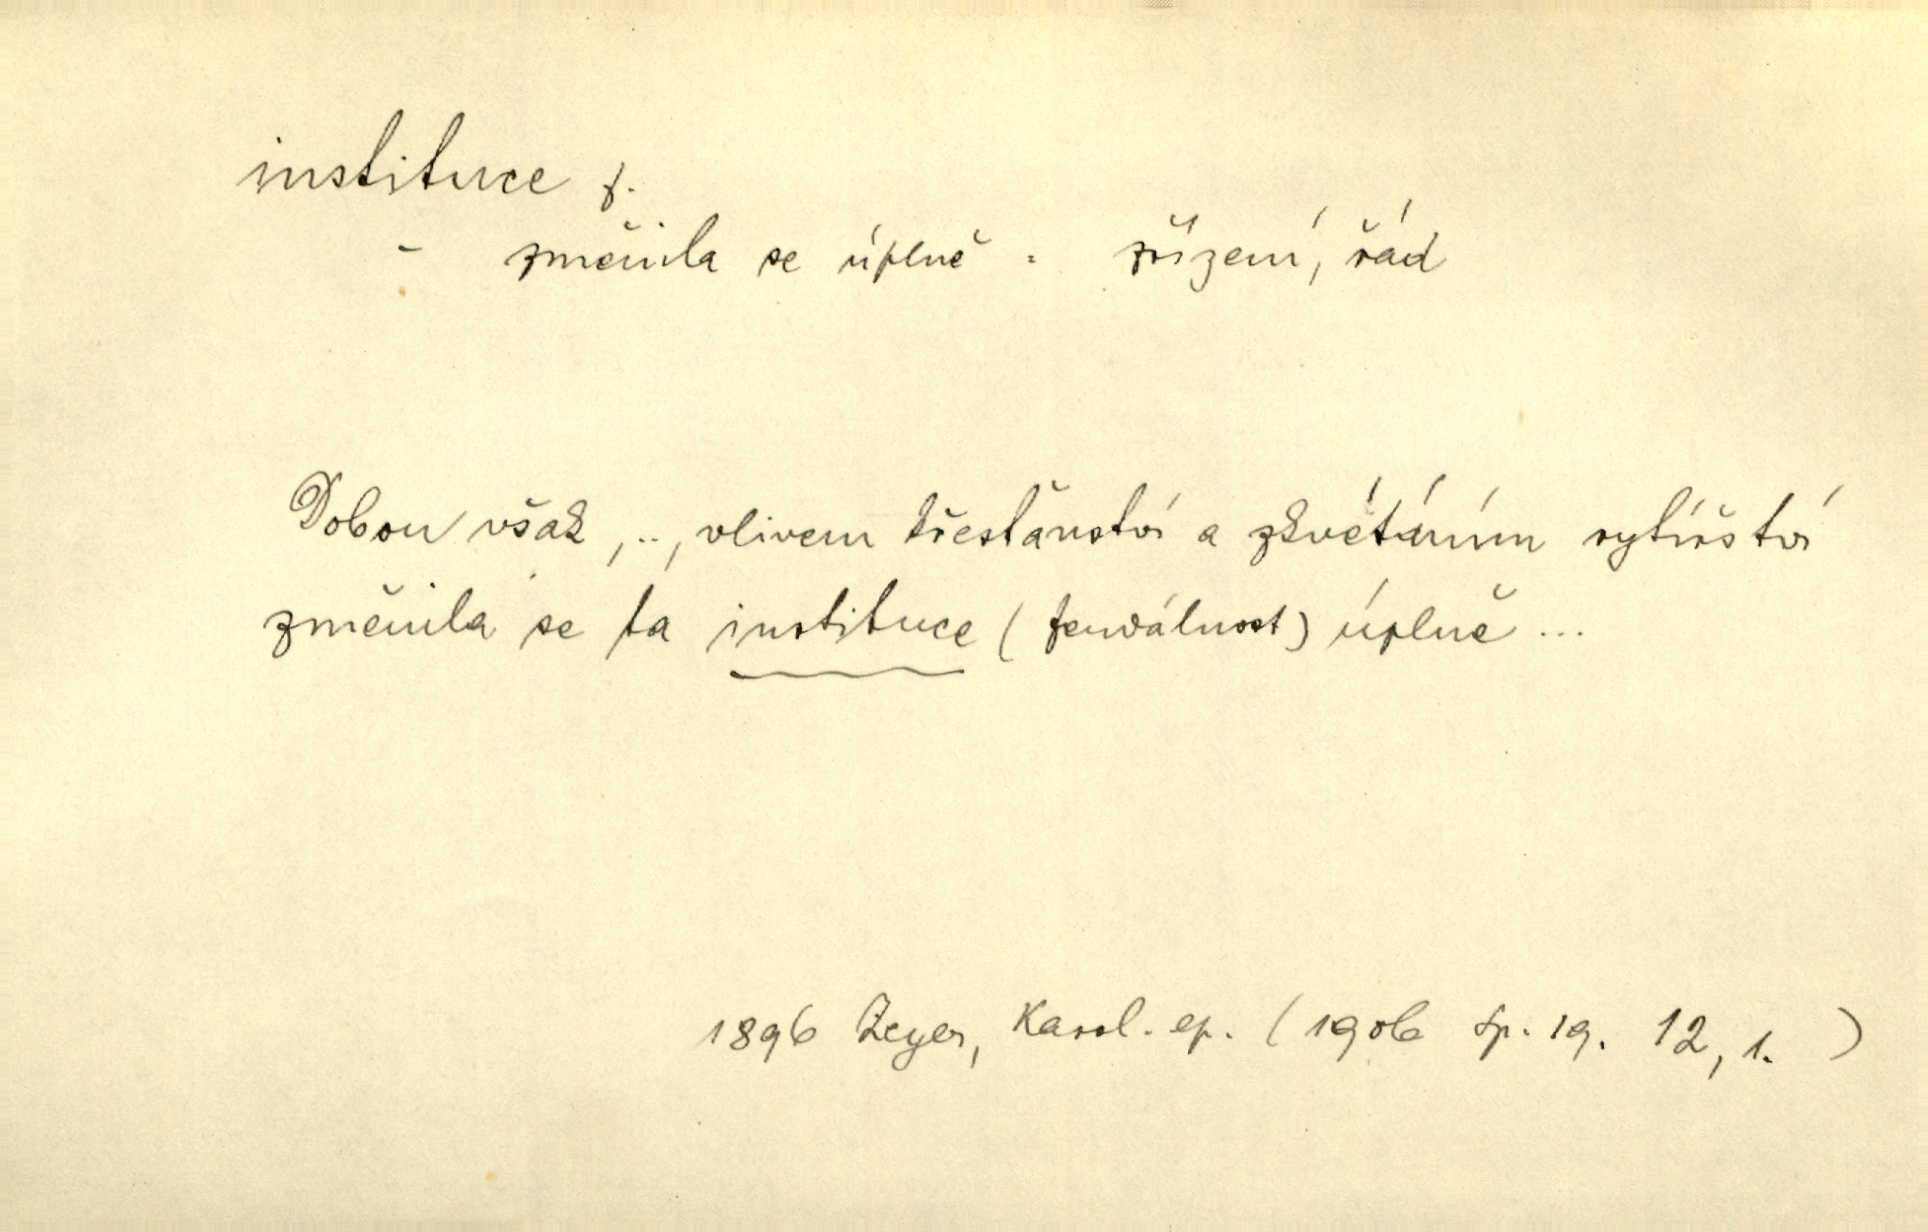 instituce f.
– změnila se úplně : zřízení, řád
Dobou však, .., vlivem křesťanství a zkvétáním rytířství
změnila se ta instituce (feudálnost) úplně ...
1896 Zeyer, Karol. ep. (1906 Sp. 19. 12, 1. )